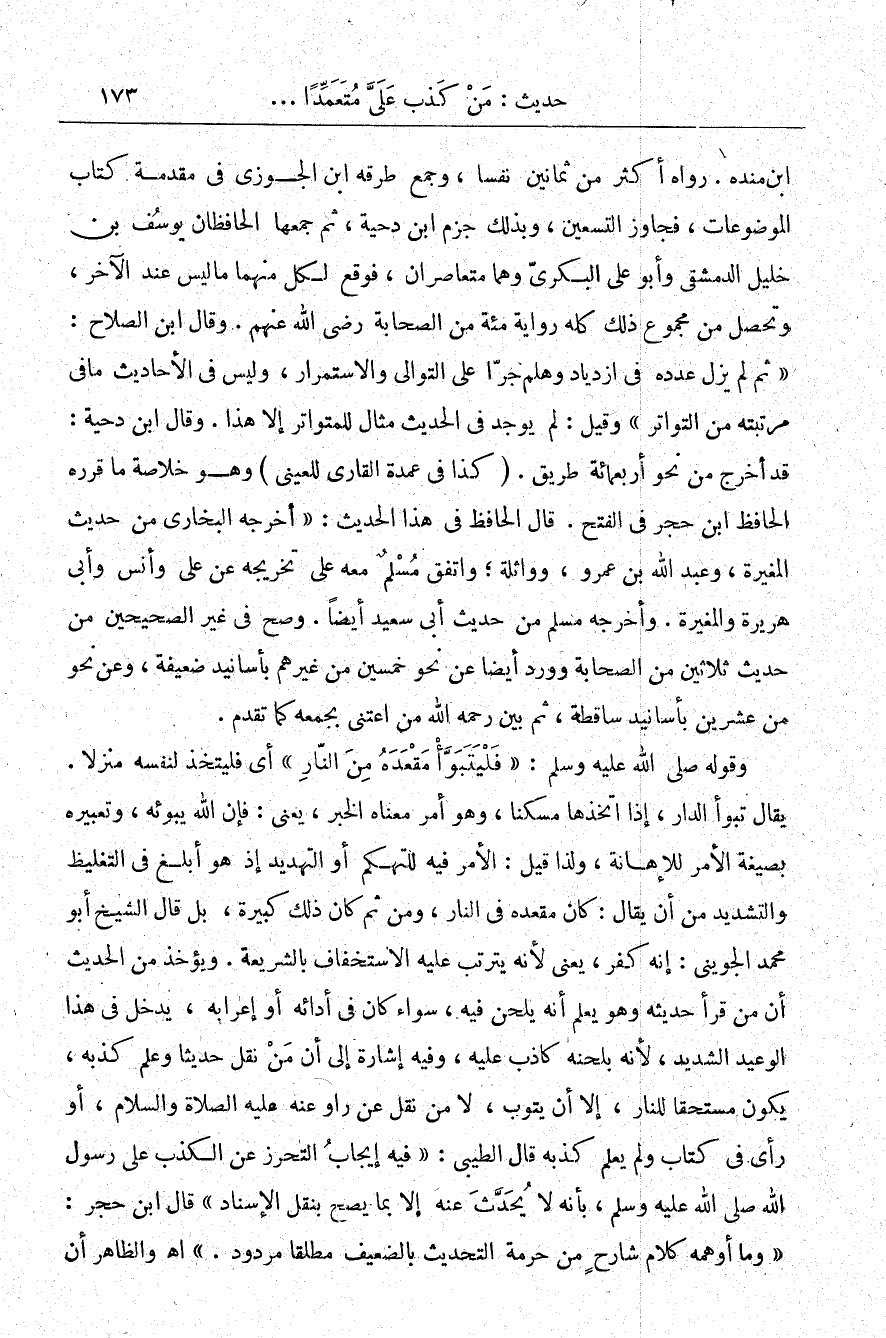 حديث : مَنْ كَذب عَلَىَّ مُتَعَمِّدًا ... ١٧٣
ابن منده . رواه أكثر من ثمانين نفسا ، وجمع طرقه ابن الجـوزى فى مقدمـة كتاب
الموضوعات ، فجاوز التسعين ، وبذلك جزم ابن دحية ، ثم جمعها الحافظان يوسُف بن
خليل الدمشقى وأبو على البـكرىّ وهما متعاصران ، فوقع لـكل منهما ماليس عند الآخر ،
وتحصل من مجموع ذلك كله رواية مئة من الصحابة رضى الله عنهم . وقال ابن الصلاح :
« ثم لم يزل عدده فى ازدياد وهلم جرّا على التوالى والاستمرار ، وليس فى الأحاديث مافى
مرتبته من التواتر » وقيل : لم يوجد فى الحديث مثال للمتواتر إلا هذا . وقال ابن دحية :
قد أخرج من نحو أربعمائة طريق . ( كذا فى عمدة القارى للعينى ) وهـو خلاصة ما قرره
الحافظ ابن حجر فى الفتح . قال الحافظ فى هذا الحديث : « أخرجه البخارى من حديث
المغيرة ، وعبد الله بن عمرو ، وواثلة ؛ واتفق مُسْلمٌ معه على تخريجه عن على وأنس وأبى
هريرة والمغيرة . وأخرجه مسلم من حديث أبى سعيد أيضاً . وصح فى غير الصحيحين من
حديث ثلاثين من الصحابة وورد أيضا عن نحو خمسين من غيرهم بأسانيد ضعيفة ، وعن نحو
من عشرين بأسانيد ساقطة ، ثم بين رحمه الله من اعتنى بجمعه كما تقدم .
وقوله صلى الله عليه وسلم : « فَلْيَتَبَوَّأْ مَقْعَدَهُ مِنَ النّارِ » أى فليتخذ لنفسه منزلا .
يقال تبوأ الدار ، إذا اتخذها مسكنا ، وهو أمر معناه الخبر ، يعنى : فإن الله يبوئه ، وتعبيره
بصيغة الأمر للإهـانة ، ولذا قيل : الأمر فيه للتهـكم أو التهديد إذ هو أبلـغ فى التغليظ
والتشديد من أن يقال : كان مقعده فى النار ، ومن ثم كان ذلك كبيرة ، بل قال الشيخ أبو
محمد الجوينى : إنه كفر ، يعنى لأنه يترتب عليه الاستخفاف بالشريعة . ويؤخذ من الحديث
أن من قرأ حديثه وهو يعلم أنه يلحن فيه ، سواء كان فى أدائه أو إعرابه ، يدخل فى هذا
الوعيد الشديد ، لأنه بلحنه كاذب عليه ، وفيه إشارة إلى أن مَنْ نقل حديثا وعلم كذبه ،
يكون مستحقا للنار ، إلا أن يتوب ، لا من نقل عن راو عنه عليه الصلاة والسلام ، أو
رأى فى كتاب ولم يعلم كذبه قال الطيبى : « فيه إيجابُ التحرز عن الـكذب على رسول
الله صلى الله عليه وسلم ، بأنه لا يُحَدَّثَ عنه إلا بما يصح بنقل الإسناد » قال ابن حجر :
« وما أوهمه كلام شارحٍ من حرمة التحديث بالضعيف مطلقا مردود . » اهـ والظاهر أن